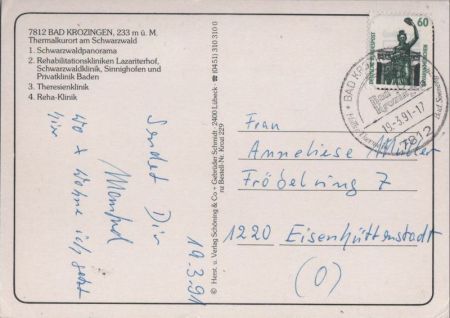 7812 BAD KROZINGEN, 233 m ü. M.
Thermalkurort am Schwarzwald
1. Schwarzwaldpanorama
2. Rehabilitationskliniken Lazariterhof,
Schwarzwaldklinik, Sinnighofen und
Privatklinik Baden
3. Theresienklinik
4. Reha-Klinik
wo x wohne ich jetzt
hier
Sendet Dir
Manfred
19.3.91
© Herst. u. Verlag Schöning & Co + Gebrüder Schmidt · 2400 Lübeck · ☎ (0451) 310 310 0
nz Bestell-Nr. Krozi 229
60
DEUTSCHE BUNDESPOST
BAD KROZINGEN
Bad Krozingen
19.-3.91-17
7812
Frau
Anneliese Müller
Fröbelring 7
1220 Eisenhüttenstadt
(O)